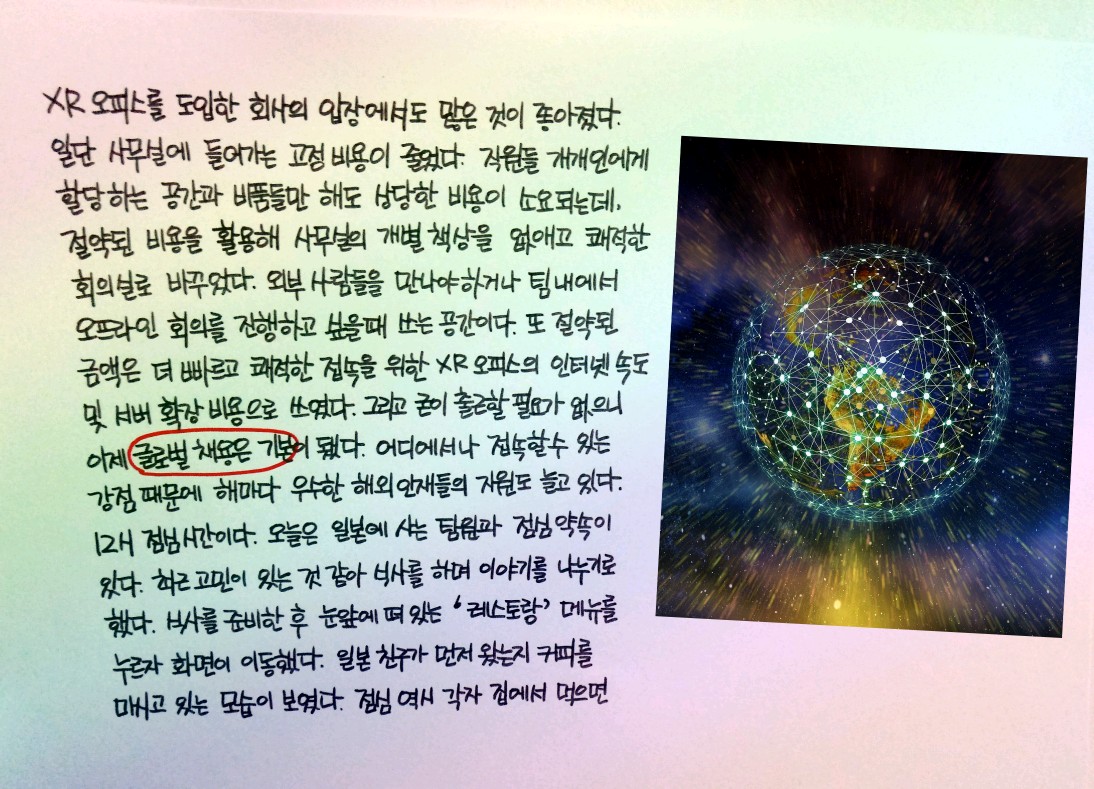 XR 오피스를 도입한 회사의 입장에서도 많은 것이 좋아졌다.
일단 사무실에 들어가는 고정 비용이 줄었다. 직원들 개개인에게
할당하는 공간과 비품들만 해도 상당한 비용이 소요되는데,
절약된 비용을 활용해 사무실의 개별 책상을 없애고 쾌적한
회의실로 바꾸었다. 외부 사람들을 만나야하거나 팀 내에서
오프라인 회의를 진행하고 싶을때 쓰는 공간이다. 또 절약된
금액은 더 빠르고 쾌적한 접속을 위한 XR 오피스의 인터넷 속도
및 서버 확장 비용으로 쓰였다. 그리고 굳이 출근할 필요가 없으니
이제 글로벌 채용은 기본이 됐다. 어디에서나 접속할수 있는
강점 때문에 해마다 우수한 해외 인재들의 지원도 늘고 있다.
12시 점심시간이다. 오늘은 일본에 사는 팀원과 점심 약속이
있다. 최근 고민이 있는 것 같아 식사를 하며 이야기를 나누기로
했다. 식사를 준비한 후 눈앞에 떠 있는 '레스토랑' 메뉴를
누르자 화면이 이동했다. 일본 친구가 먼저 왔는지 커피를
마시고 있는 모습이 보였다. 점심 역시 각자 집에서 먹으면